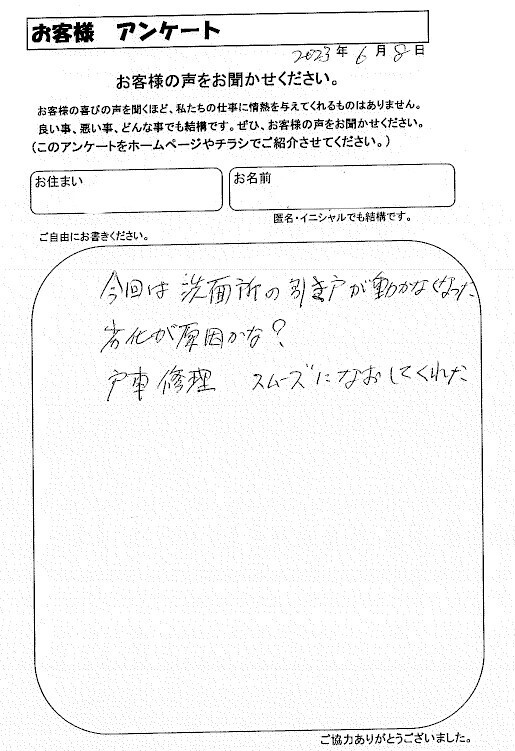 お客様 アンケート
2023年 6月 8日
お客様の声をお聞かせください。
お客様の喜びの声を聞くほど、私たちの仕事に情熱を与えてくれるものはありません。
良い事、悪い事、どんな事でも結構です。ぜひ、お客様の声をお聞かせください。
(このアンケートをホームページやチラシでご紹介させてください。)
お住まい
お名前
匿名・イニシャルでも結構です。
ご自由にお書きください。
今回は 洗面所の引き戸が動かなくなった
劣化が原因かな?
戸車 修理 スムーズになおしてくれた
ご協力ありがとうございました。